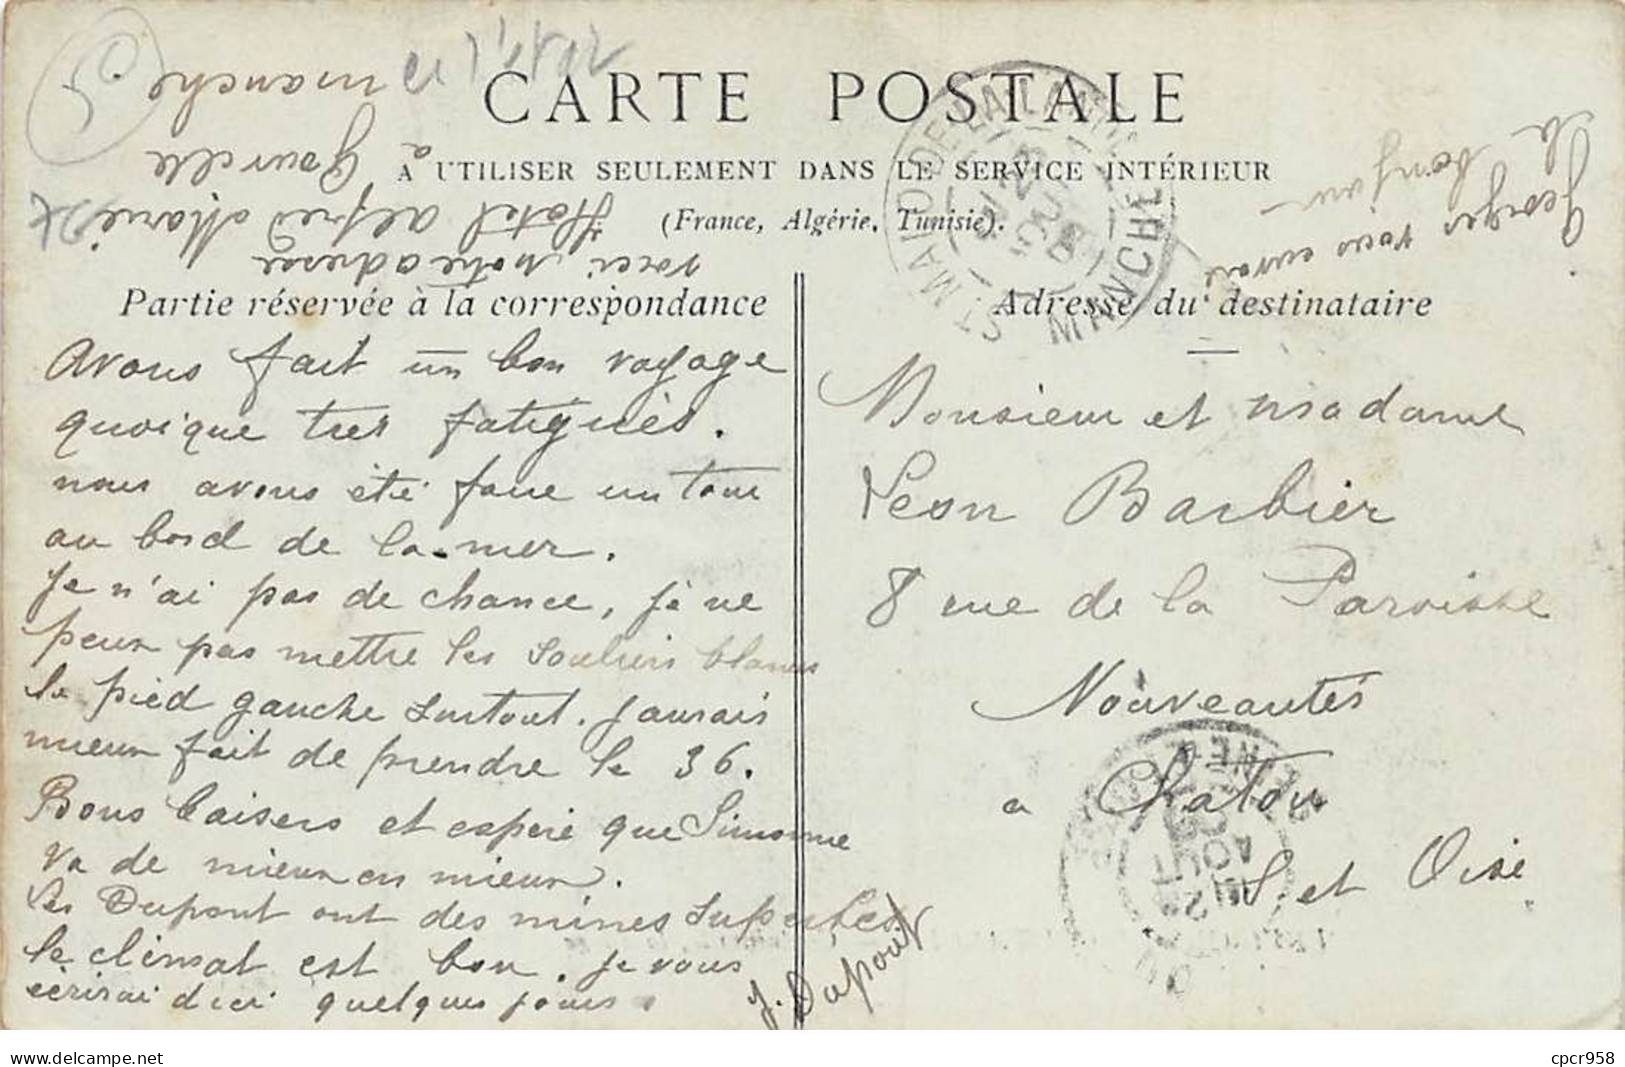 CARTE POSTALE
A UTILISER SEULEMENT DANS LE SERVICE INTÉRIEUR
(France, Algérie, Tunisie).
Partie réservée à la correspondance
Adresse du destinataire
Avons fait un bon voyage
quoique tres fatigués.
nous avons été faire un tour
au bord de la mer.
Je n'ai pas de chance, je ne
peux pas mettre les souliers blancs
le pied gauche surtout. J'aurais
mieux fait de prendre le 36.
Bons baisers et espère que Simonne
va de mieux en mieux.
Les Dupont ont des mines superbes
le climat est bon. je vous
écrirai d'ici quelques jours.
J. Dupont
Monsieur et madame
Leon Barbier
8 rue de la Paroisse
Nouveautés
a Chatou
S. et Oise
voici notre adresse
Hotel alfred Marie
a Gourville
manche
Georges vous envoie
le bonjour
MANCHE
cpcr958